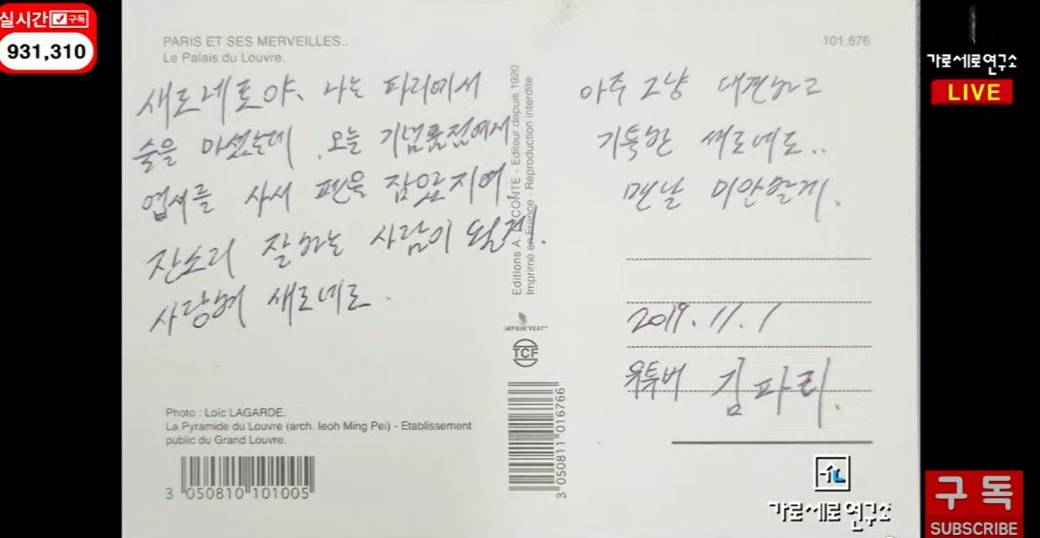 실시간 구독
931,310
PARIS ET SES MERVEILLES..
Le Palais du Louvre.
101.676
새로네로야. 나는 파리에서
술을 마셨는데. 오늘 기념품점에서
엽서를 사서 펜을 잡았지여
잔소리 잘하는 사람이 될게.
사랑혀 새로네로.
Editions A. LECONTE - Editeur depuis 1920
Imprimé en France - Reproduction interdite
IMPRIM'VERT
TCF
Photo : Loïc LAGARDE.
La Pyramide du Louvre (arch. Ieoh Ming Pei) - Etablissement
public du Grand Louvre.
3 050810 101005
3 050811 016766
아주 그냥 대견하고
기특한 새로네로..
맨날 미안할게.
2019. 11. 1
유투버 김파리.
가로세로연구소
LIVE
가로세로연구소
구독
SUBSCRIBE